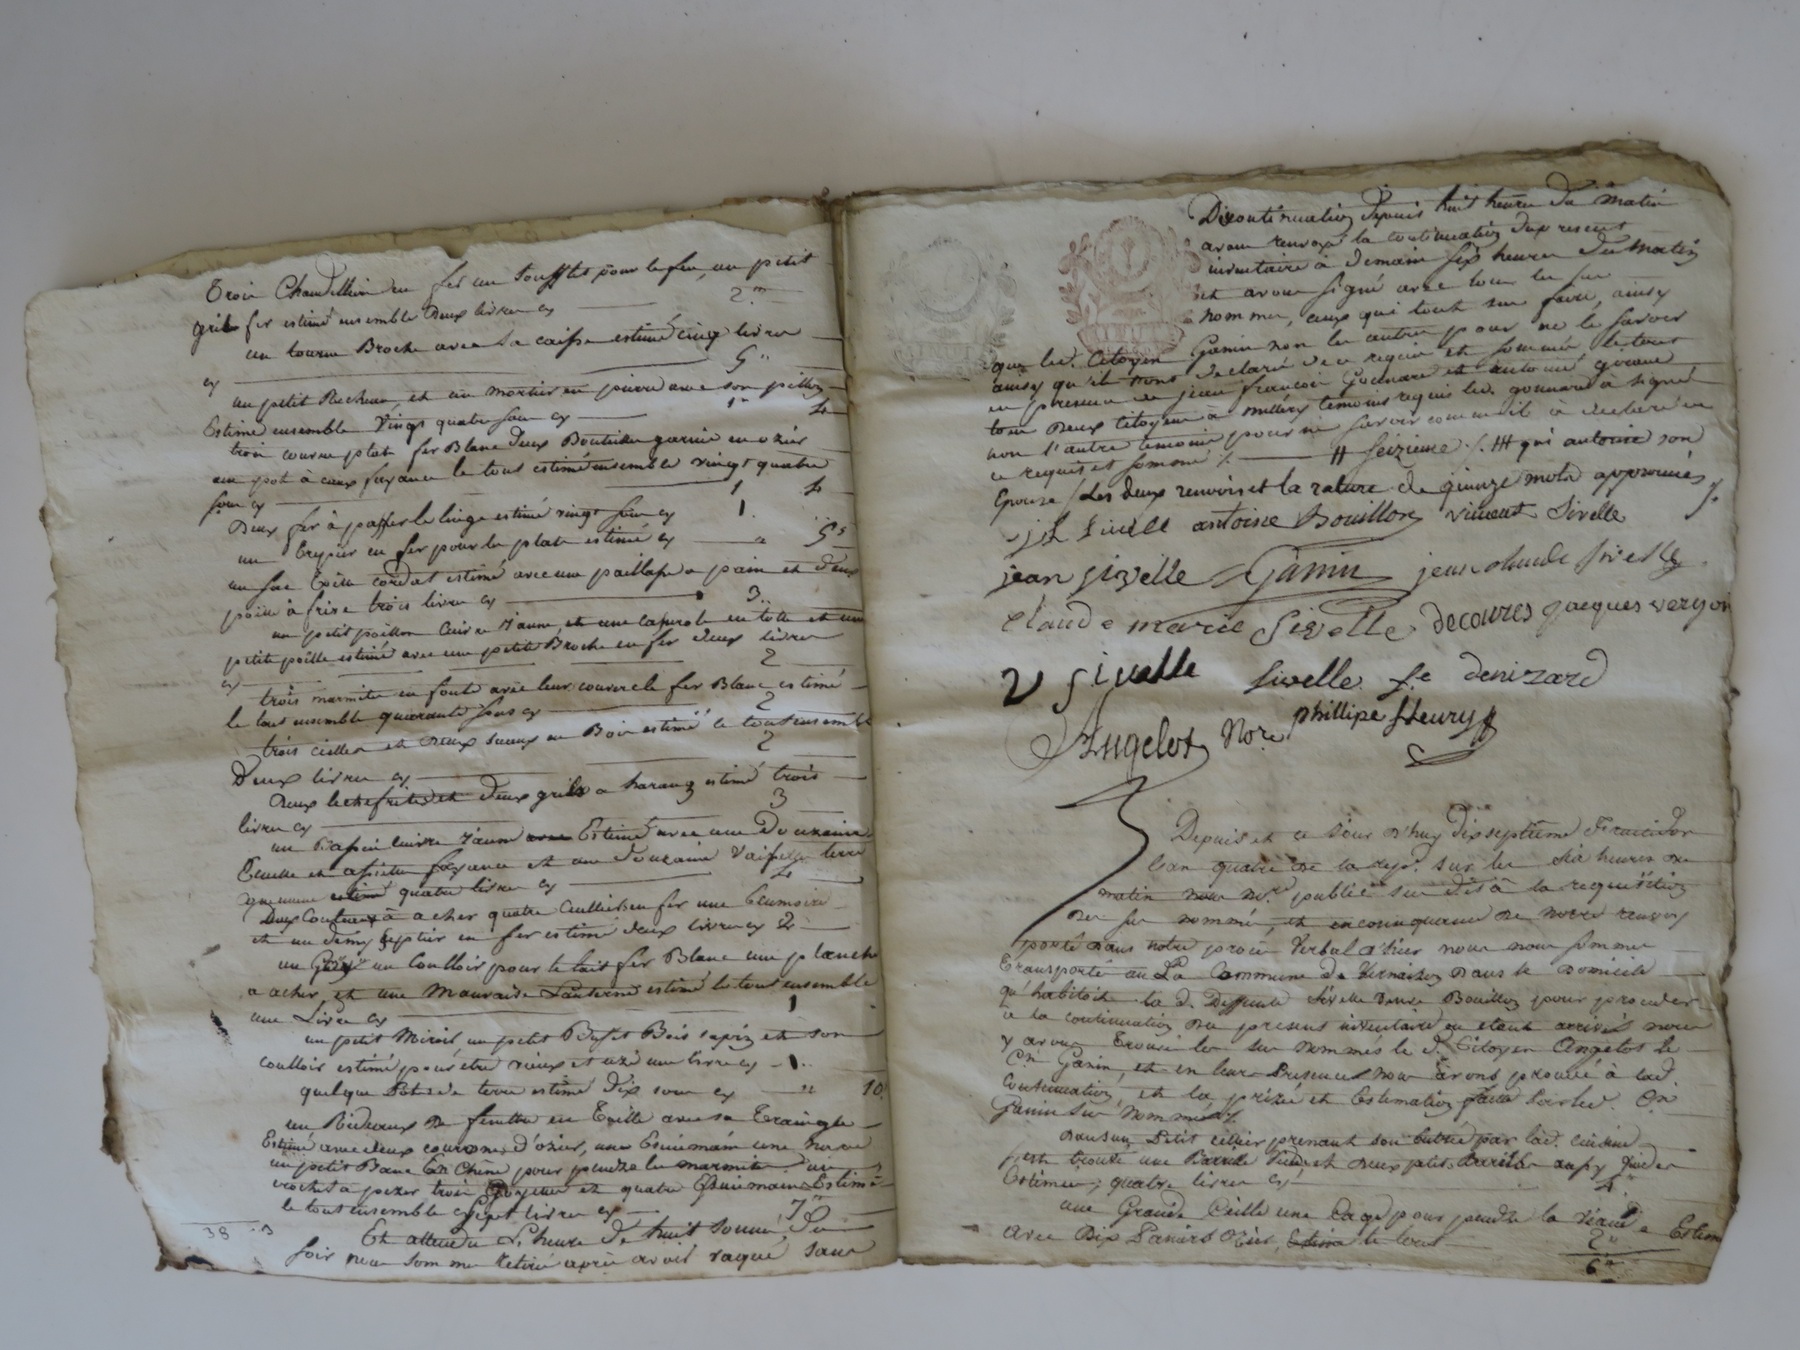 Trois Chandellier en fer un soufflet pour le feu, un petit
gril fer estimé ensemble deux livres cy 2
un tourne Broche avec sa caisse estimé cinq livres
cy 5
un petit et un mortier en pierre avec son pillon
Estimé ensemble Vingt quatre sous cy 1 4
trois couvre plat fer Blanc deux Bouteilles garnie en ozier
un pot à eaux fayance le tout estimé ensemble vingt quatre
sous cy 1 4
Deux fer à passer le linge estimé vingt sous cy 1
un en fer pour les plats estimé cy 5
un sac estimé avec une paillasse a pain et deux
poille à frire trois livres cy 3
un petit poillon Cuivre Jaune, et une casserole en tolle et une
petite poille estimé avec une petite Broche en fer deux livres
cy 2
trois marmite en fonte avec leur couvercle fer Blanc estimé
le tout ensemble quarante sous cy 2
trois ceilles et deux seaux en Bois estimé le tout ensemble
Deux livres cy 2
Deux lechefrites et deux grils a harang estimé trois
livres cy 3
un Bassin cuivre Jaune Estimé avec une Douzaine
Ecuelle et assiettes fayance et une douzaine Vaisselle terre
commune estimé quatre livres cy 4
Deux Couteaux à acher quatre Cuilliers en fer une Ecumoire
et un demy septier en fer estimé deux livres cy 2
un un Coulloir pour le lait fer Blanc une planche
a acher, et une Mauvaise Lanterne estimé le tout ensemble
une Livre cy 1
un petit Miroir un petit Buffet Bois sapin et son
coulloir estimé pour être vieux et uzé une livre cy 1
quelque Pots de terre estimé dix sous cy 10
un Rideaux de fenetre en Toille avec sa Traingle
Estimé avec deux d'ozier, une Essuiemain une
un petit Banc En Chêne pour pendre les marmites, un
crochet à pezer trois et quatre Essuiemain Estimé
le tout ensemble sept livres cy 7
38 3
Et attendu L'heure de huit sonné, du
soir nous sommes Retiré après avoir vaqué sans
Discontinuation depuis huit heures du Matin
avons renvoyé la continuation du present
inventaire à demain six heures du Matin
et avons signé avec tous les sus
nommes, ceux qui l'ont sue faire, ainsy
que led. Citoyen Ganin non les autres pour ne le savoir
ainsy qu'ils nous declaré de ce requis et sommés le tout
en presence de jean françois Gonnard et antoine
tous deux Citoyens à Millery temoins requis led. gonnard a signé
non l'autre temoins pour ne savoir comme il à declaré de
ce requis et sommé /. # seizieme /. ## qui autorise son
Epouse / Les deux renvois et la rature de quinze mots approuvés /.
J L Sivelle antoine Bouillon vincent Sivelle
jean sivelle Ganin jean claude sivelle
Claude marie Sivelle decoures jacques vergon
V Sivelle Sivelle fe denizard
Angelot Nore phillipe fleury
Depuis et ce Jour d'huy dix septième Fructidor
l'an quatre de la rep. sur les six heures du
matin nous n.re publicq sus dit à la requisition
des sus nommé, et en consequence de notre renvoy
porté dans notre procès Verbal d'hier nous nous sommes
transporté au La Commune de Vernaison dans le Domicile
qu'habitoit la d. Deffunte Sivelle Veuve Bouillon pour proceder
a la continuation du present inventaire ou étant arrivés nous
y avons trouvé les sus nommés le d. Citoyen Angelot le
Cn. Ganin, et en leurs Presence Nous avons procedé à lad.
Continuation, et la prizée et Estimation faite par led. Cn.
Ganin sus nommés /.
Dans un Petit cellier prenant son entrée par lad. cuisine
s'est trouvé une Barrille Vuide et deux petits barrils aussy Vuides
Estimés, quatre livres cy 4
une Grande Ceille une Cage pour pendre la Viande Estimé
avec Dix Paniers Ozier, Estimé le tout 2
6